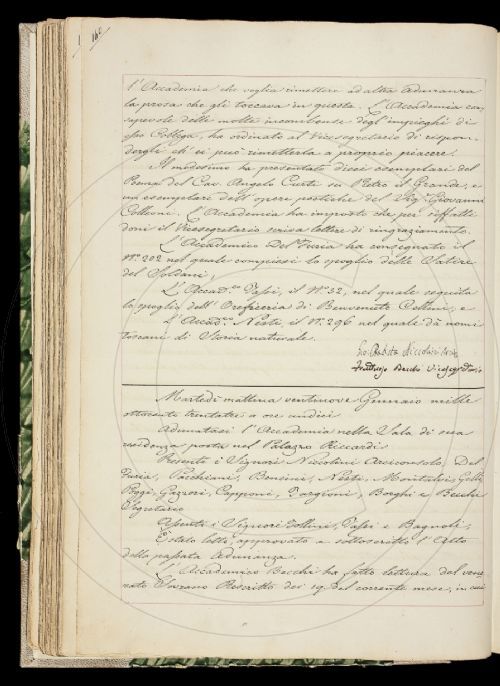 160
l'Accademia che voglia rimettere ad altra adunanza
la prosa che gli toccava in questa. L'Accademia con-
sapevole delle molte incombenze degl'impieghi di
esso Collega, ha ordinato al Vicesegretario di rispon-
dergli ch'ei può rimetterla a proprio piacere.
Il medesimo ha presentato dieci esemplari del
Poema del Cav. Angelo Curti su Pietro il Grande, e
un esemplare dell'opere poetiche del Sig. Giovanni
Colleoni. L'Accademia ha imposto che per siffatti
doni il Vicesegretario scriva lettere di ringraziamento.
L'Accademico Del Furia ha consegnato il
N.º 202 nel quale compiesi lo spoglio delle Satire
del Soldani;
L'Accad.co Fassi, il N.º 52, nel quale seguita
lo spoglio dell'Oreficeria di Benvenuto Cellini; e
L'Accad.co Nesti, il N.º 296 nel quale dà nomi
toscani di Storia naturale.
Gio. Batista Niccolini
Fruttuoso Becchi Vicesegretario
Martedì mattina ventinove Gennaio mille
ottocento trentatre a ore undici
Adunatasi l'Accademia nella Sala di sua
residenza posta nel Palazzo Riccardi
Presenti i Signori Niccolini Arciconsolo, Del
Furia, Pacchiani, Bencini, Nesti, Montalvi, Gelli
Poggi, Gazzeri, Capponi, Targioni, Borghi e Becchi
Segretario
Assenti i Signori Collini, Fassi e Bagnoli;
È stato letto, approvato e sottoscritto l'Atto
della passata Adunanza.
L'Accademico Becchi ha fatto lettura del vene-
rato Sovrano Rescritto dei 19 del corrente mese, in cui